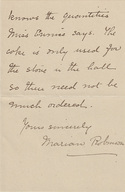 knows the quantities
Miss Ennis says. The
coke is only used for
the stove in the hall
so there need not be
much ordered.
Yours sincerely
Marian